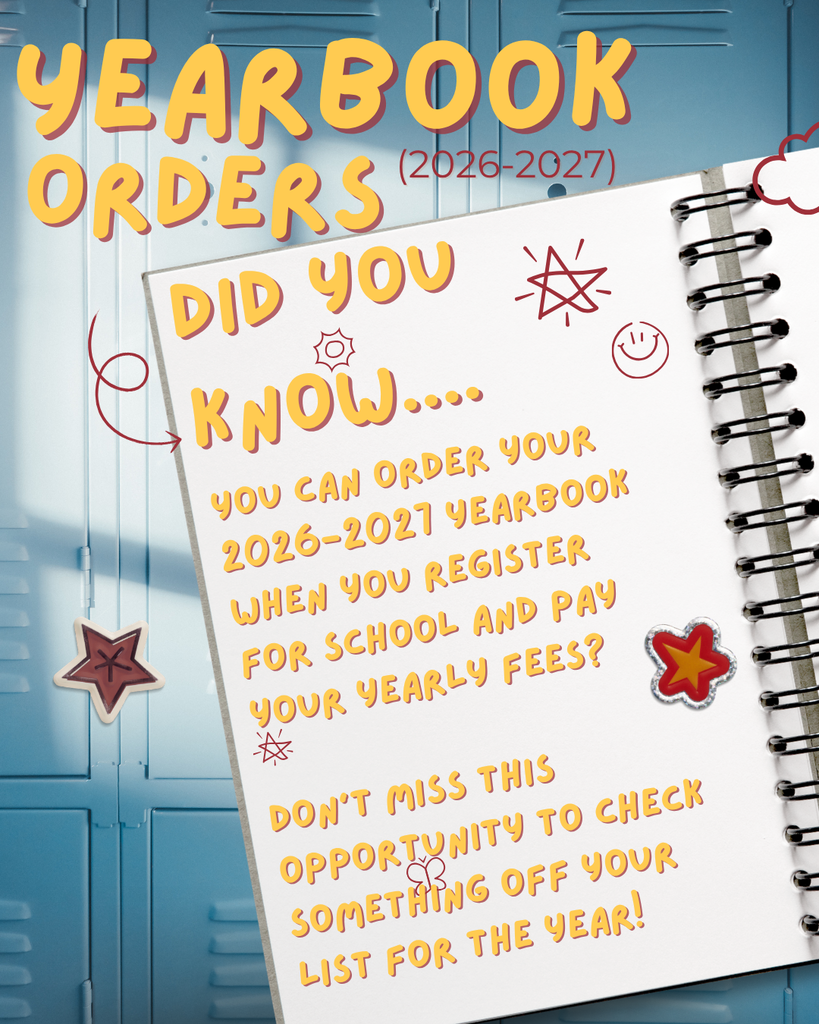 YEARBOOK
ORDERS (2026-2027)
DID YOU
KNOW....
YOU CAN ORDER YOUR
2026-2027 YEARBOOK
WHEN YOU REGISTER
FOR SCHOOL AND PAY
YOUR YEARLY FEES?
DON'T MISS THIS
OPPORTUNITY TO CHECK
SOMETHING OFF YOUR
LIST FOR THE YEAR!